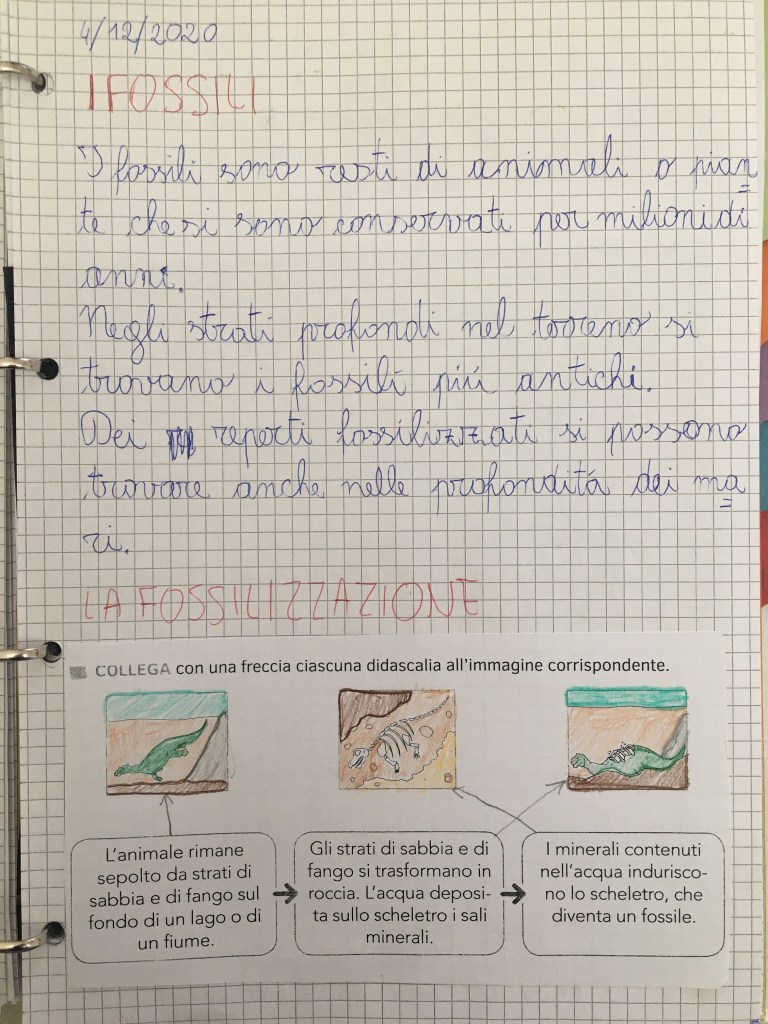 4/12/2020
I FOSSILI
I fossili sono resti di animali o pian
te che si sono conservati per milioni di
anni.
Negli strati profondi nel terreno si
trovano i fossili più antichi.
Dei reperti fossilizzati si possono
trovare anche nelle profondità dei ma
ri.
LA FOSSILIZZAZIONE
COLLEGA con una freccia ciascuna didascalia all'immagine corrispondente.
L'animale rimane
sepolto da strati di
sabbia e di fango sul
fondo di un lago o di
un fiume.
Gli strati di sabbia e di
fango si trasformano in
roccia. L'acqua deposi-
ta sullo scheletro i sali
minerali.
I minerali contenuti
nell'acqua indurisco-
no lo scheletro, che
diventa un fossile.